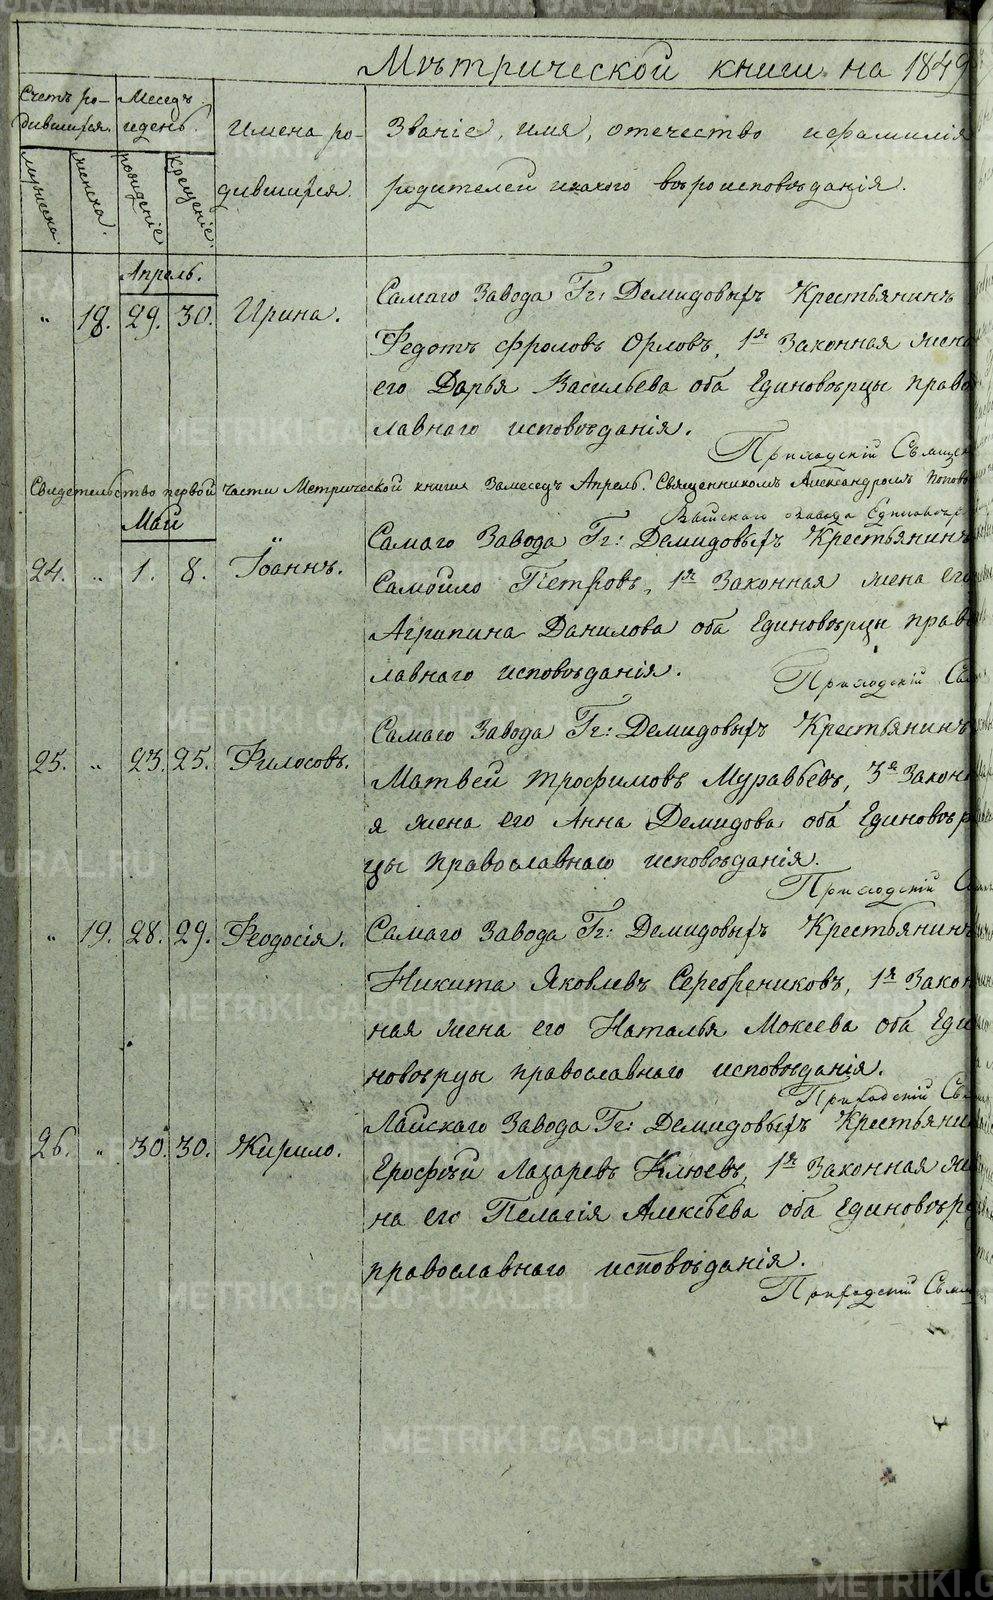 Мѣтрической книги на 1849
Счетъ ро-
дившихся.
Месецъ
и день.
Имена ро-
дившихся.
Званіе, имя, отечество и фамилія
родителей и какого вѣроисповѣданія.
мужеска.
женска.
рожденіе
крещеніе.
Апрель.
„ 18. 29. 30. Ирина.
Самаго Завода Гг: Демидовыхъ Крестьянинъ
Федотъ Фроловъ Орловъ, 1я Законная жена
его Дарья Васильева оба Единовѣрцы право
лавнаго исповѣданія.
Приходскій
Свидетельство первой части Метрической книги За месецъ Апрель. Священникомъ Александромъ Попов
Май
24. „ 1. 8. Іоаннъ.
Самаго Завода Гг: Демидовыхъ Крестьянинъ
Самойло Петровъ, 1я Законная жена его
Агрипина Данилова оба Единовѣрцы право
лавнаго исповѣданія.
Приходскій
25. „ 23. 25. Филосовъ.
Самаго Завода Гг: Демидовыхъ Крестьянинъ
Матвей Трофимовъ Муравьевъ, 3я Законн
я жена его Анна Демидова оба Единовѣр
цы православнаго исповѣданія.
Приходскій
„ 19. 28. 29. Феодосія.
Самаго Завода Гг: Демидовыхъ Крестьянинъ
Никита Яковлевъ Серебрениковъ, 1я Закон
ная жена его Наталья Мокеева оба Еди
новѣрцы православнаго исповѣданія.
Приходскій
26. „ 30. 30. Кирило.
Лайскаго Завода Гг: Демидовыхъ Крестьянин
Ерофѣй Лазаревъ Клюевъ, 1я Законная же
на его Пелагія Алексѣева оба Единовѣрц
православнаго исповѣданія.
Приходскій
METRIKI.GASO-URAL.RU